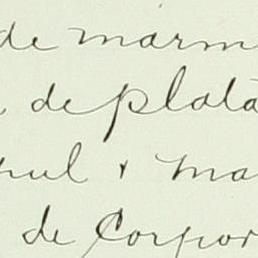 de marm
de plata
pul y ma
de Corpor